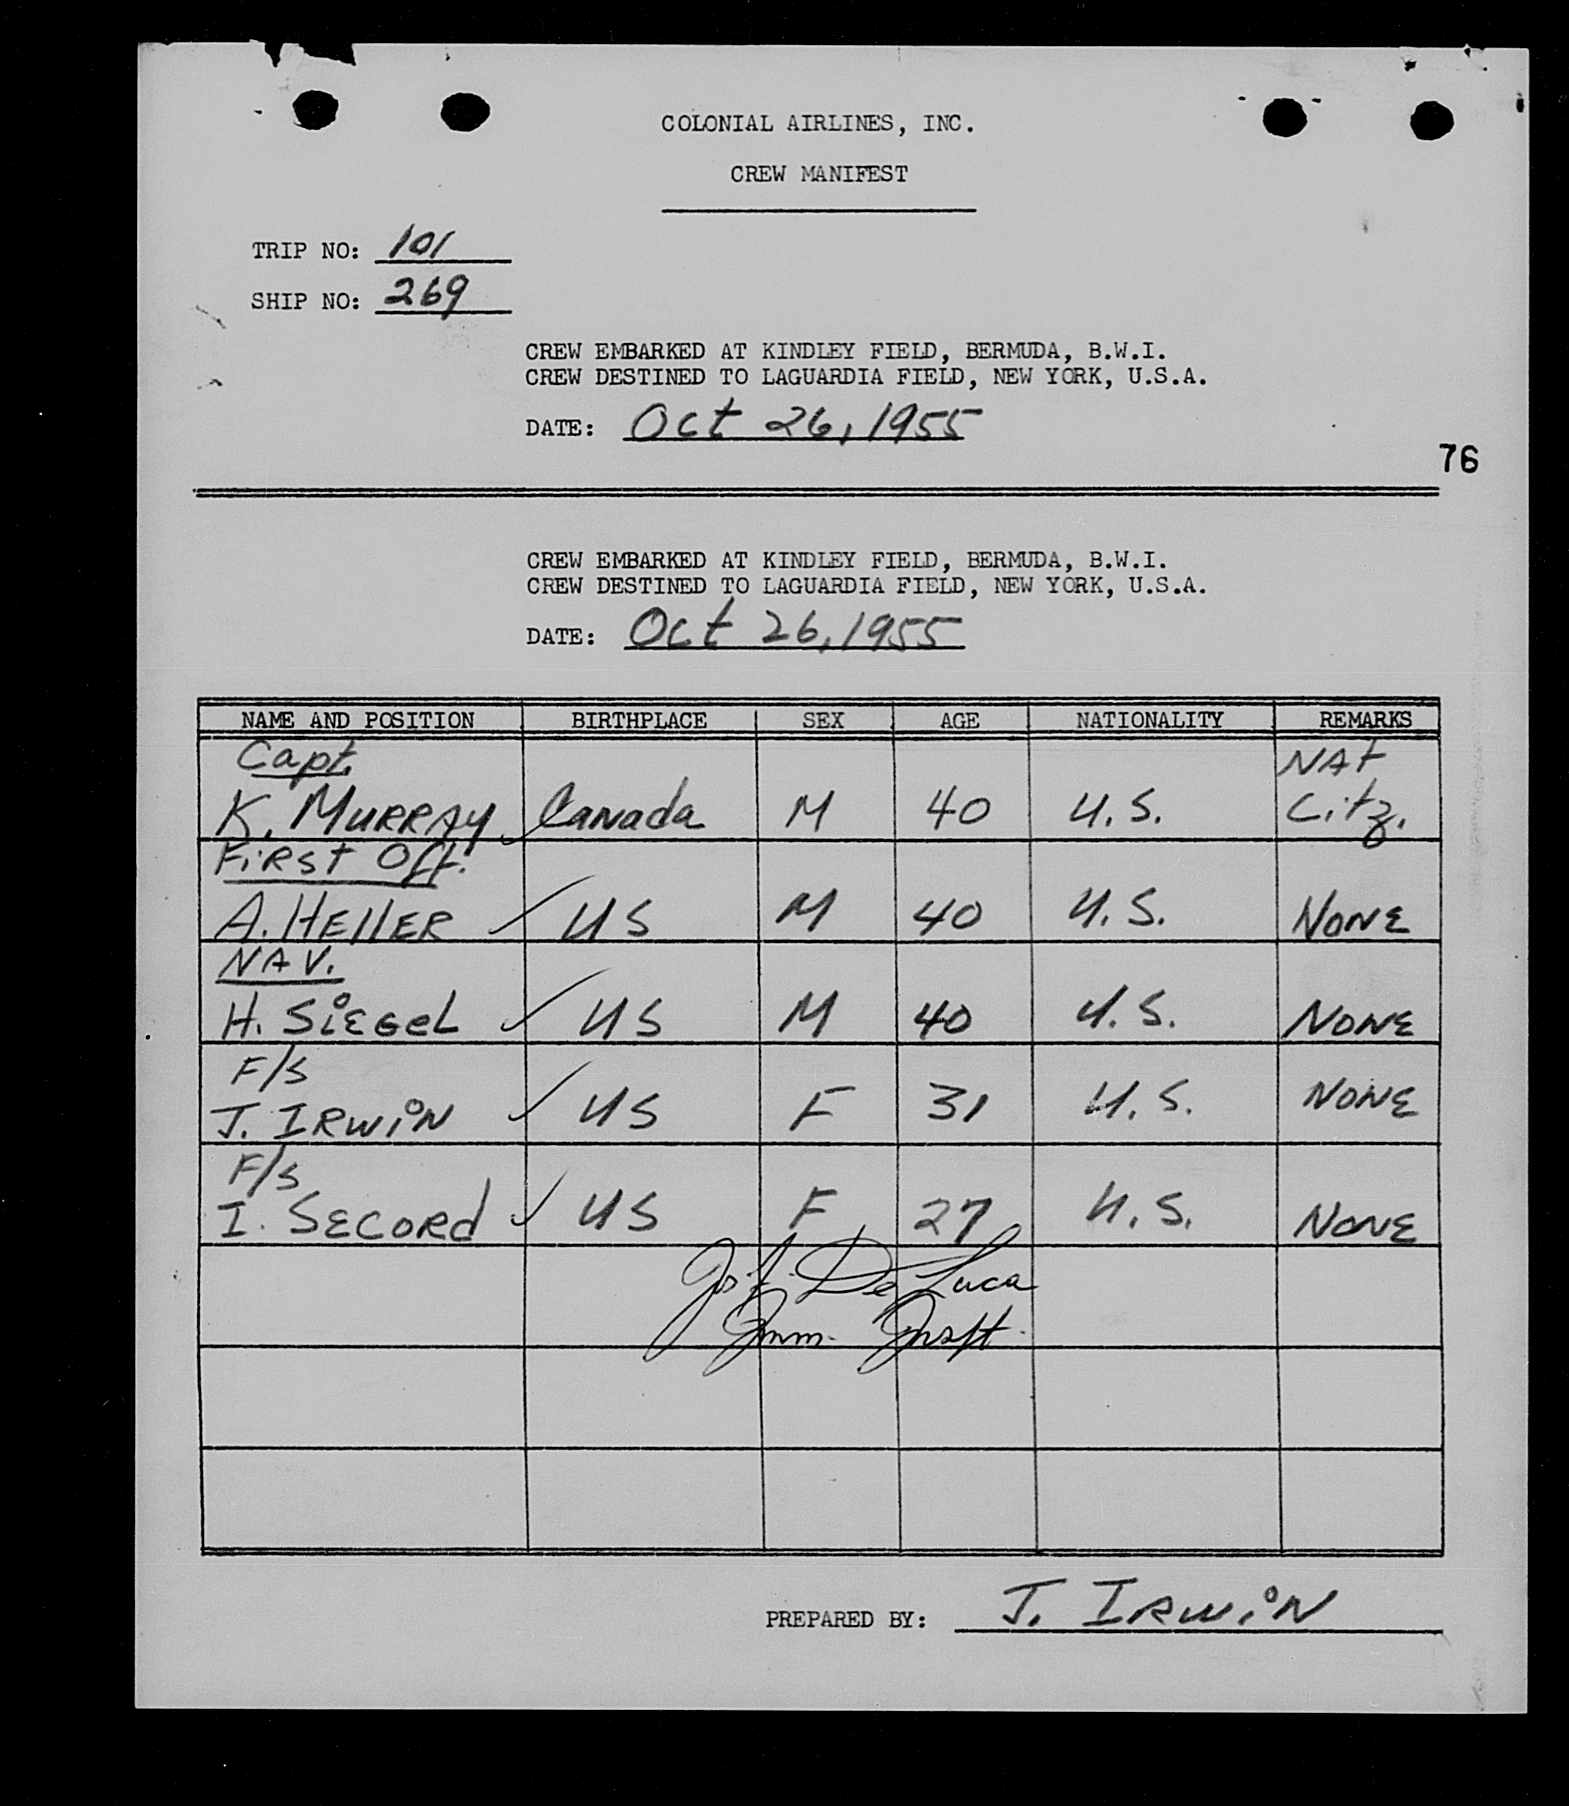 COLONIAL AIRLINES, INC.
CREW MANIFEST
TRIP NO: 101
SHIP NO: 269
CREW EMBARKED AT KINDLEY FIELD, BERMUDA, B.W.I.
CREW DESTINED TO LAGUARDIA FIELD, NEW YORK, U.S.A.
DATE: Oct 26, 1955
76
CREW EMBARKED AT KINDLEY FIELD, BERMUDA, B.W.I.
CREW DESTINED TO LAGUARDIA FIELD, NEW YORK, U.S.A.
DATE: Oct 26, 1955
NAME AND POSITION BIRTHPLACE SEX AGE NATIONALITY REMARKS
Capt. NAt
K. MURRAy Canada M 40 U.S. Citz.
FiRst Off.
A. HEllER ✓ US M 40 U.S. NONE
NAV.
H. SiEGeL ✓ US M 40 U.S. NONE
F/S
J. IRWiN ✓ US F 31 U.S. NONE
F/S
I. SECORd ✓ US F 27 U.S. NONE
De Luca
Imm. Inspt.
PREPARED BY: J. IRWiN